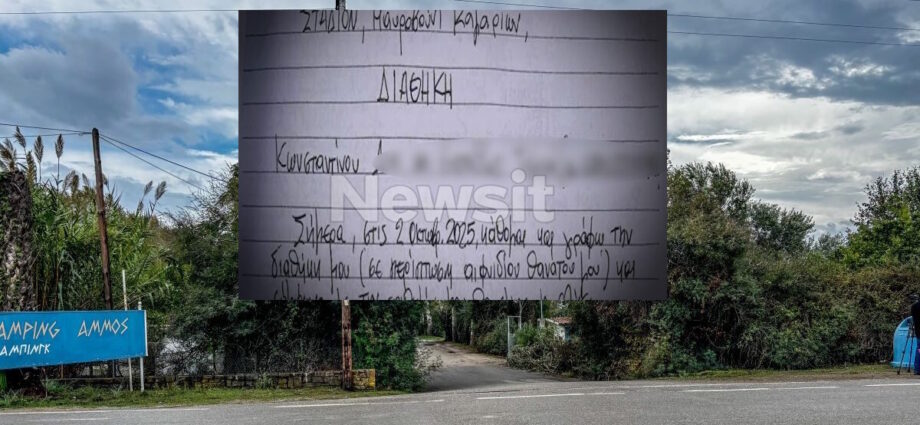 ΣΤΑΔΙΟΝ, Μαυροβούνι Καλαμών,
ΔΙΑΘΗΚΗ
Κωνσταντίνου
Newsit
Σήμερα, στις 2 Οκτωβ. 2025, κάθομαι και γράφω την
διαθήκη μου (σε περίπτωση αιφνιδίου θανάτου μου) και
AMPING AMMOS
ΑΜΠΙΝΓΚ